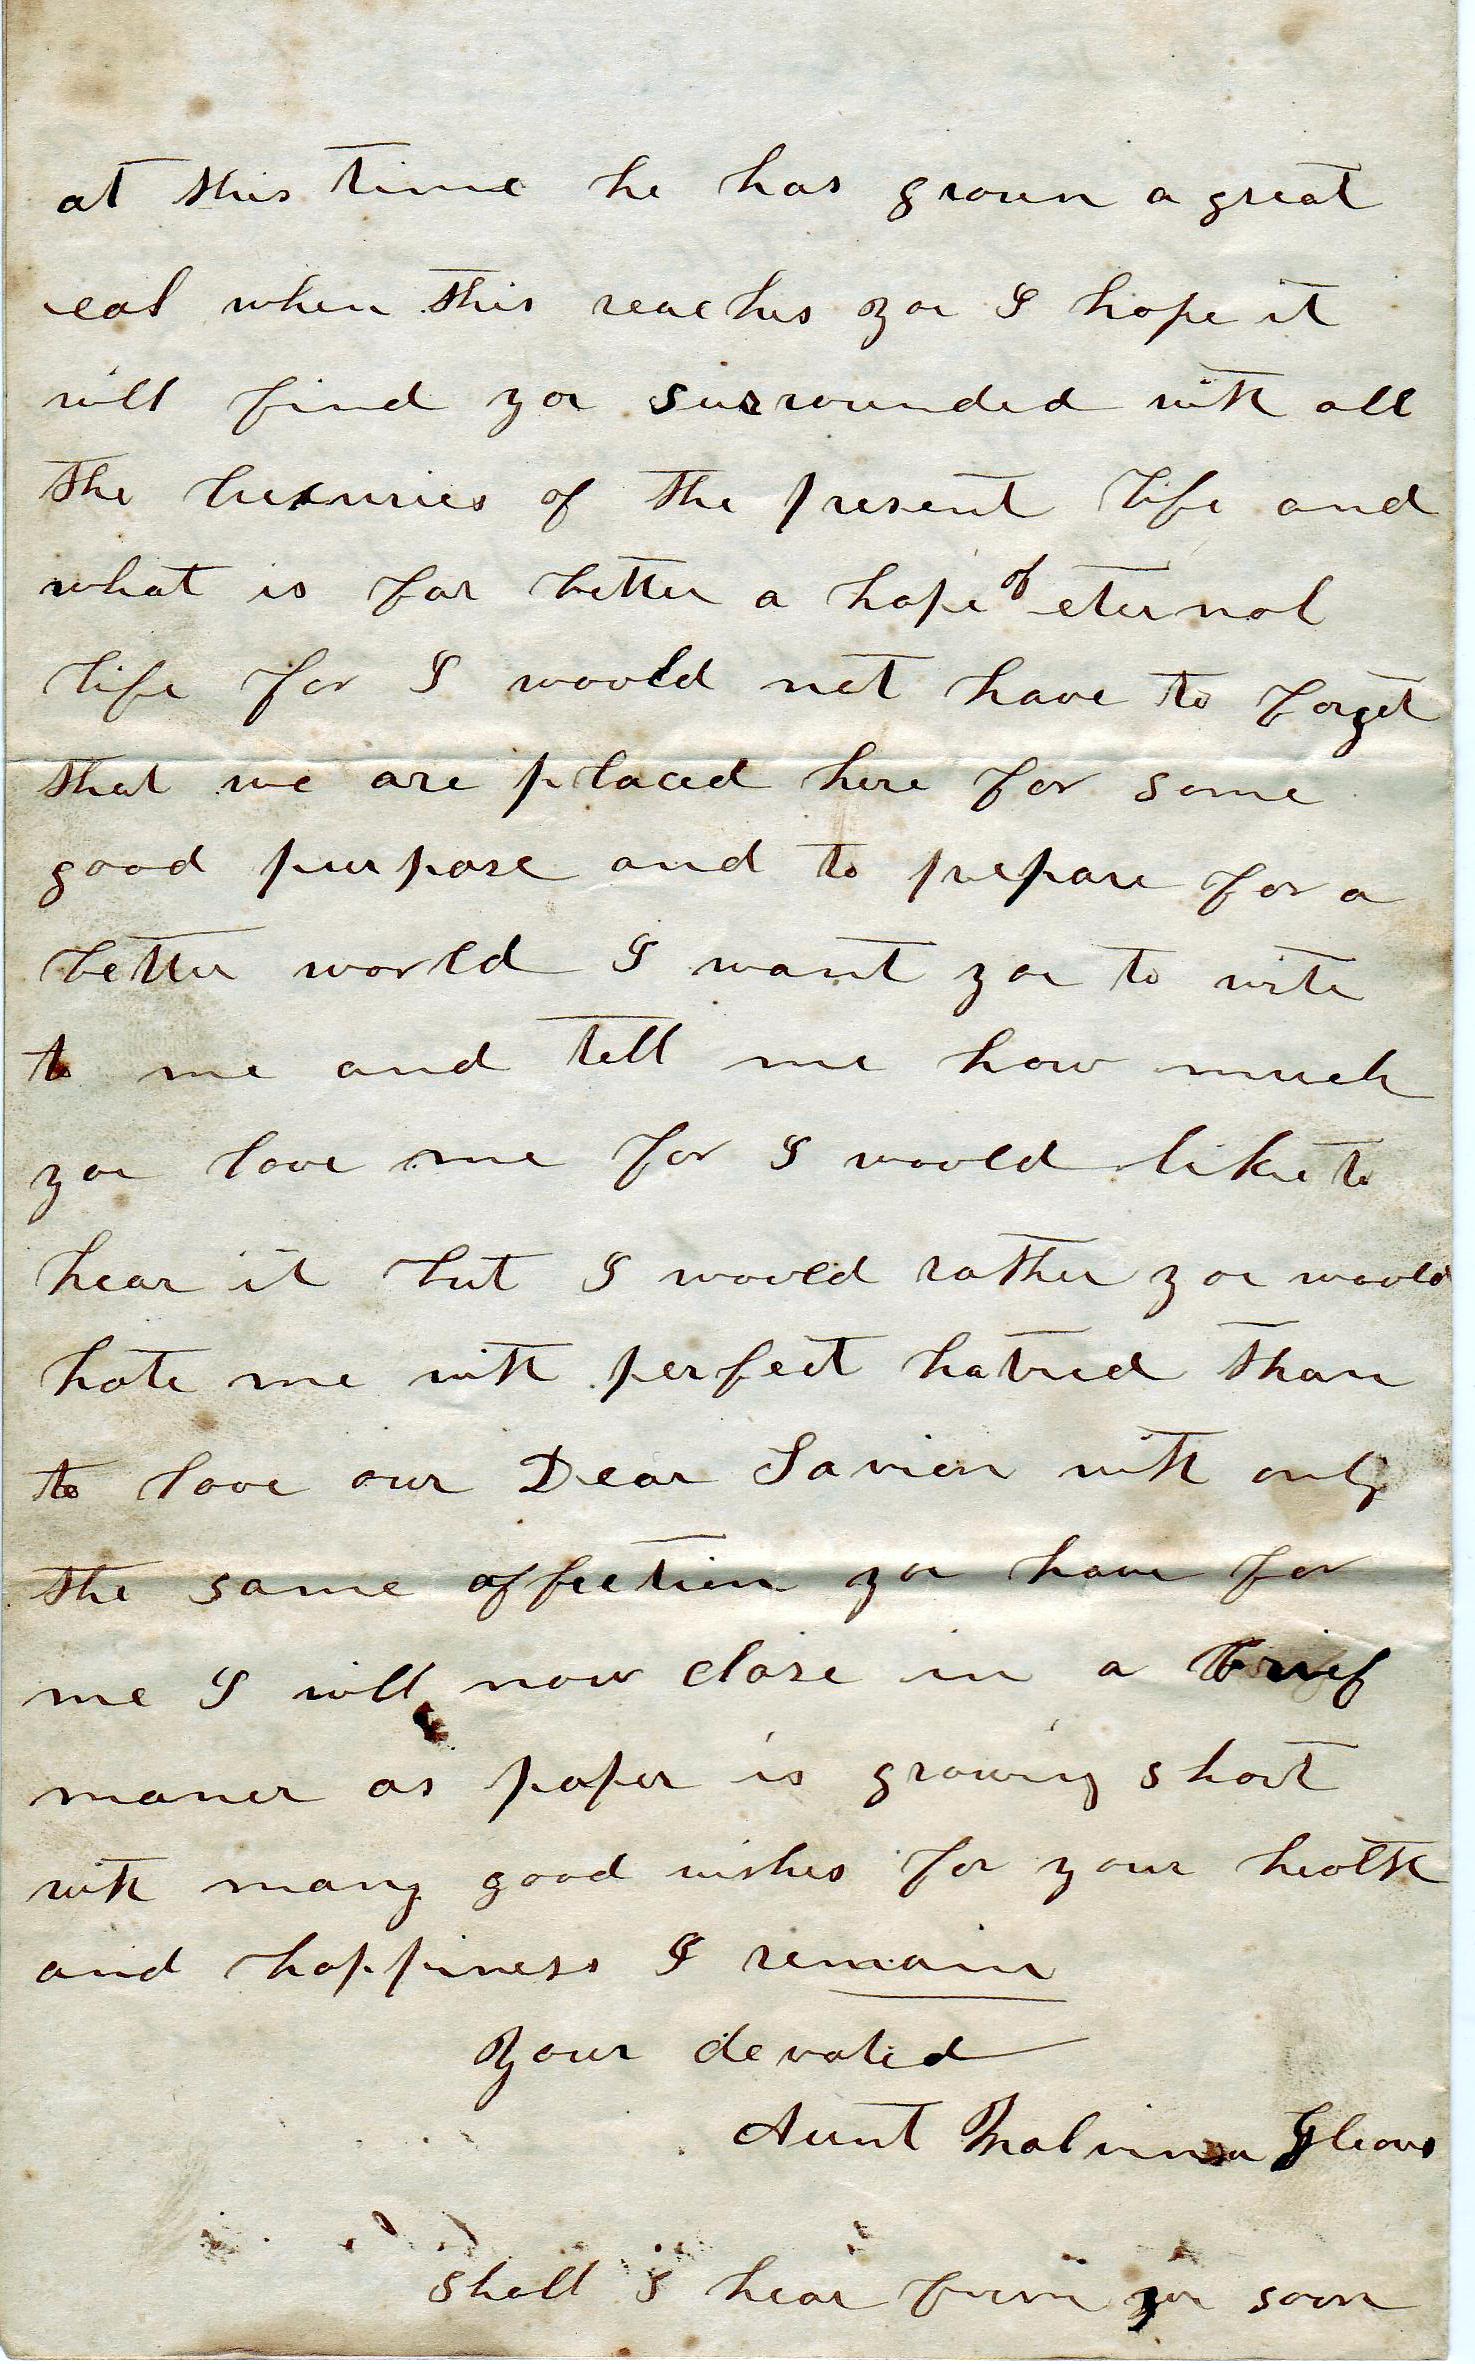 at this time he has grown a great
eal when this reaches you I hope it
will find you surrounded with all
the luxuries of the present life and
what is far better a hope of eternal
life for I would not have to forget
that we are placed here for some
good purpose and to prepare for a
better world I want you to write
to me and tell me how much
you love me for I would like to
hear it but I would rather you would
hate me with perfect hatred than
to love our Dear Savior with only
the same affection you have for
me I will now close in a brief
maner as paper is growing short
with many good wishes for your health
and happiness I remain
Your devoted
Aunt Malvina Gleaves
Shall I hear from you soon